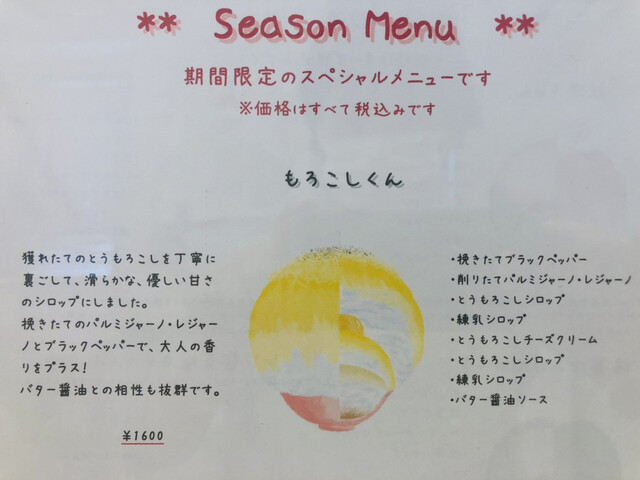 ** Season Menu **
期間限定のスペシャルメニューです
※価格はすべて税込みです
もろこしくん
獲れたてのとうもろこしを丁寧に
裏ごして、滑らかな、優しい甘さ
のシロップにしました。
挽きたてのパルミジャーノ・レジャー
ノとブラックペッパーで、大人の香
りをプラス!
バター醤油との相性も抜群です。
¥1600
・挽きたてブラックペッパー
・削りたてパルミジャーノ・レジャーノ
・とうもろこしシロップ
・練乳シロップ
・とうもろこしチーズクリーム
・とうもろこしシロップ
・練乳シロップ
・バター醤油ソース